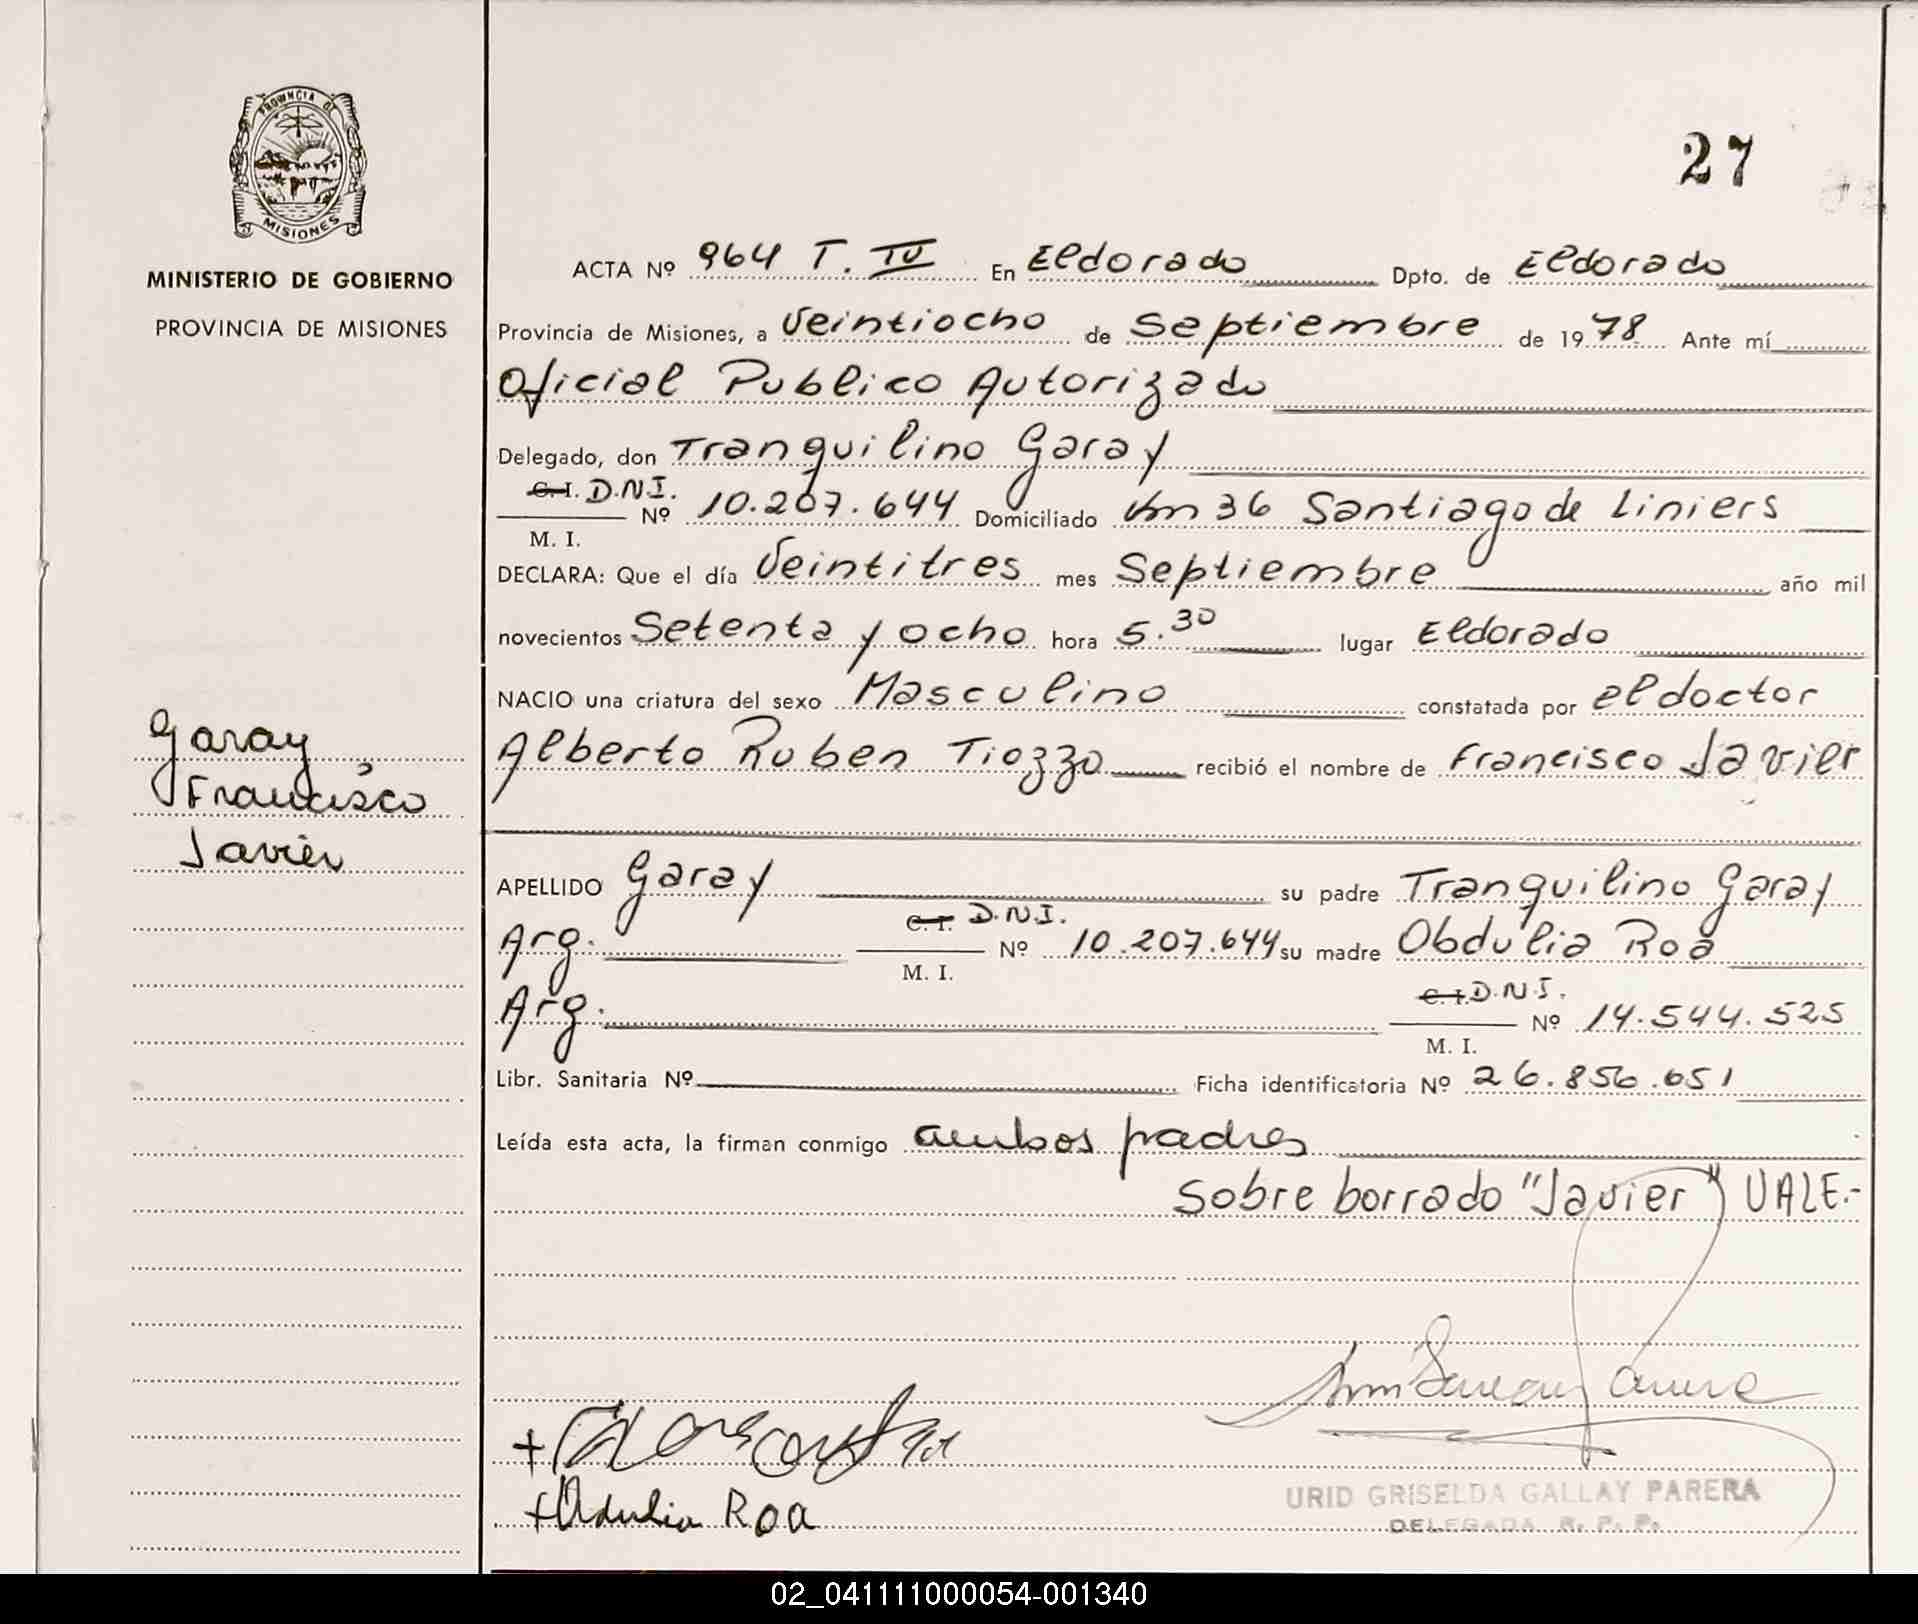 PROVINCIA DE
MISIONES
MINISTERIO DE GOBIERNO
PROVINCIA DE MISIONES
27
ACTA Nº 964 T. IV En Eldorado Dpto. de Eldorado
Provincia de Misiones, a Veintiocho de Septiembre de 1978 Ante mí
Oficial Publico Autorizado
Delegado, don Tranquilino Garay
C. I. D.N.I.
Nº 10.207.644 Domiciliado Km 36 Santiago de Liniers
M. I.
DECLARA: Que el día Veintitres mes Septiembre año mil
novecientos Setenta y ocho hora 5.30 lugar Eldorado
NACIO una criatura del sexo Masculino constatada por el doctor
Alberto Ruben Tiozzo recibió el nombre de Francisco Javier
Garay
Francisco
Javier
APELLIDO Garay su padre Tranquilino Garay
C. I. D.N.I.
Arg. Nº 10.207.644 su madre Obdulia Roa
M. I.
C. I. D.N.I.
Arg. Nº 14.544.525
M. I.
Libr. Sanitaria Nº Ficha identificatoria Nº 26.856.051
Leída esta acta, la firman conmigo ambos padres
Sobre borrado "Javier" VALE.-
+Odulia Roa
URID GRISELDA GALLAY PARERA
DELEGADA R. P. P.
02_041111000054-001340